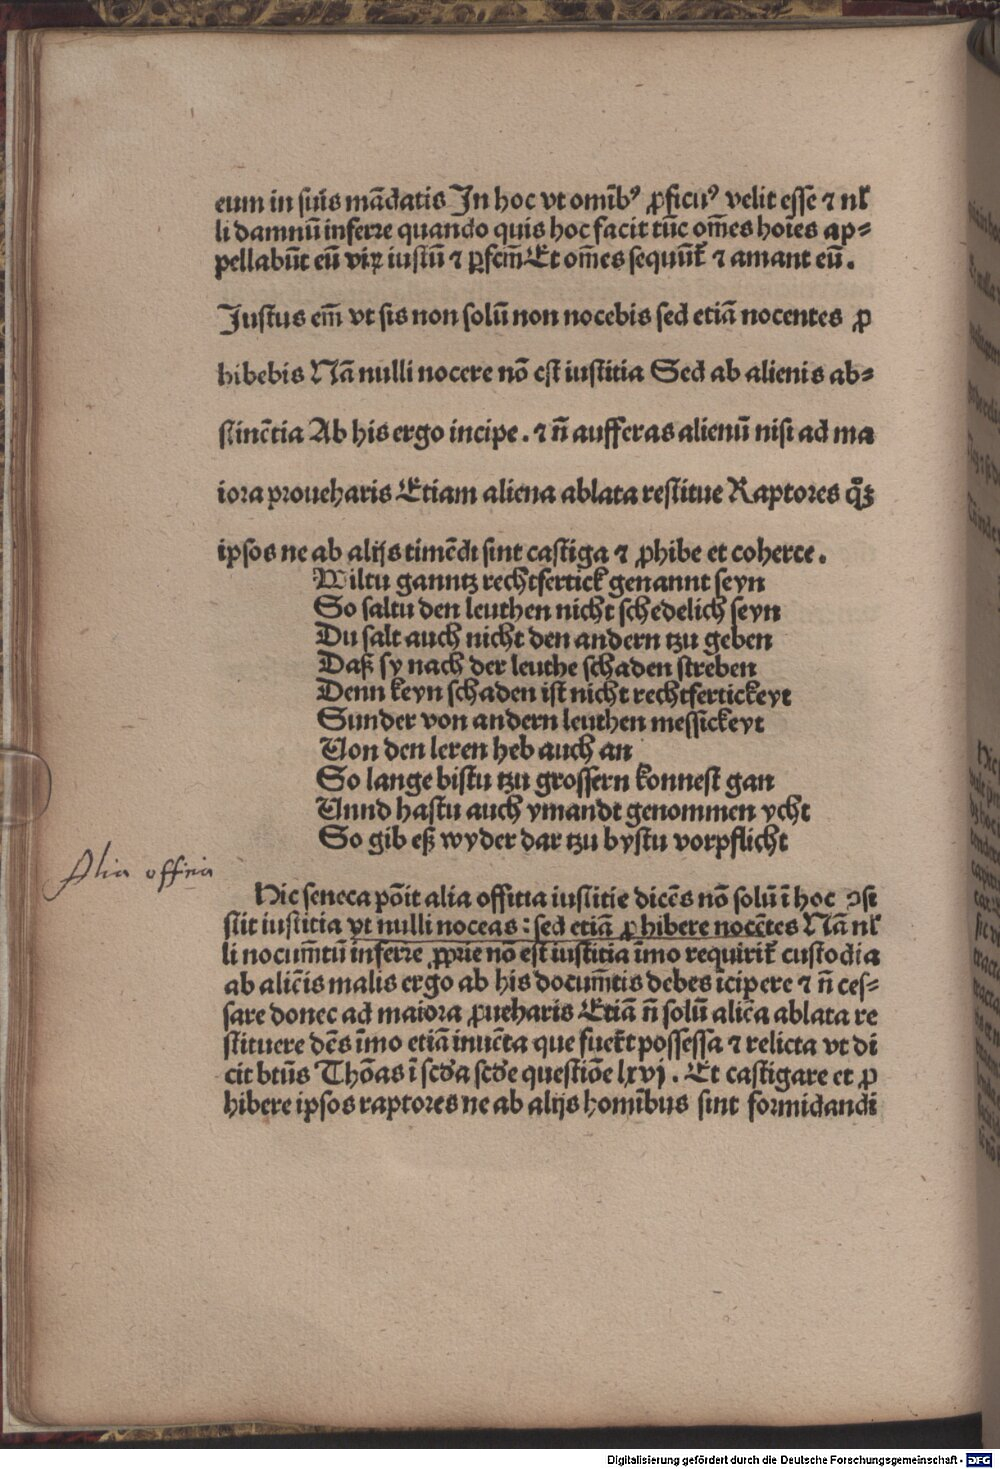 eum in suis mādatis In hoc vt omībꝰ ꝓficuꝰ velit esse ⁊ nł
li damnū inferre quando quis hoc facit tūc om̄es hoīes ap⸗
pellabūt eū viꝝ iustū ⁊ ꝑfcm̄ Et om̄es sequūt̄ ⁊ amant eū.
Justus em̄ vt sis non solū non nocebis sed etiā nocentes ꝓ
hibebis Nā nulli nocere nō est iustitia Sed ab alienis ab⸗
stinētia Ab his ergo incipe. ⁊ n̄ aufferas alienū nisi ad ma
iora proueharis Etiam aliena ablata restitue Raptores qꝫ
ipsos ne ab alijs timēdi sint castiga ⁊ ꝓhibe et coherce.
Wiltu ganntz rechtfertick genannt seyn
So saltu den leuthen nicht schedelich seyn
Du salt auch nicht den andern tzu geben
Daß sy nach der leuthe schaden streben
Denn keyn schaden ist nicht rechtfertickeyt
Sunder von andern leuthen messickeyt
Von den leren heb auch an
So lange bistu tzu grossern konnest gan
Vnnd hastu auch ymandt genommen ycht
So gib eß wyder dar tzu bystu vorpflicht
Alia officia
Hic seneca pōit alia offitia iustitie dicēs nō solū ī hoc ꝯsi
stit iustitia vt nulli noceas : sed etiā ꝓhibere nocētes Nā nł
li nocum̄tū inferre ꝓprie nō est iustitia īmo requirit̄ custodia
ab aliēis malis ergo ab his docum̄tis debes īcipere ⁊ n̄ ces⸗
sare donec ad maiora ꝓueharis Etiā n̄ solū aliēa ablata re
stituere dēs īmo etiā inuēta que fuer̄t possessa ⁊ relicta vt di
cit btūs Thōas ī scd̄a scd̄e questiōe lxvj. Et castigare et ꝓ
hibere ipsos raptores ne ab alijs homībus sint formidandi
Digitalisierung gefördert durch die Deutsche Forschungsgemeinschaft - DFG